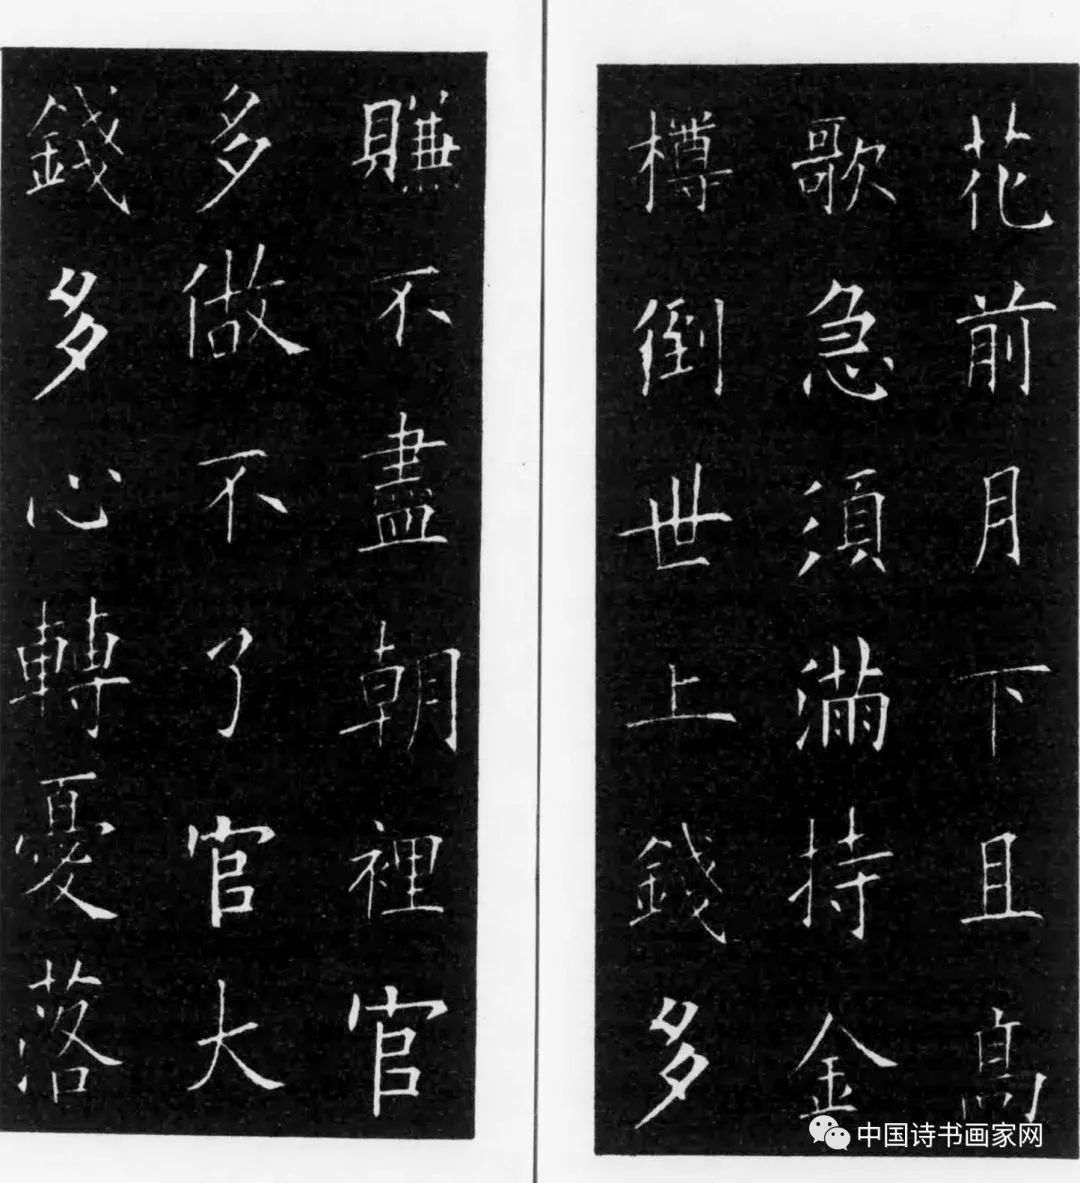 花前月下且高
歌急須滿持金
樽倒世上錢多
賺不盡朝裡官
多做不了官大
錢多心轉憂落
中国诗书画家网